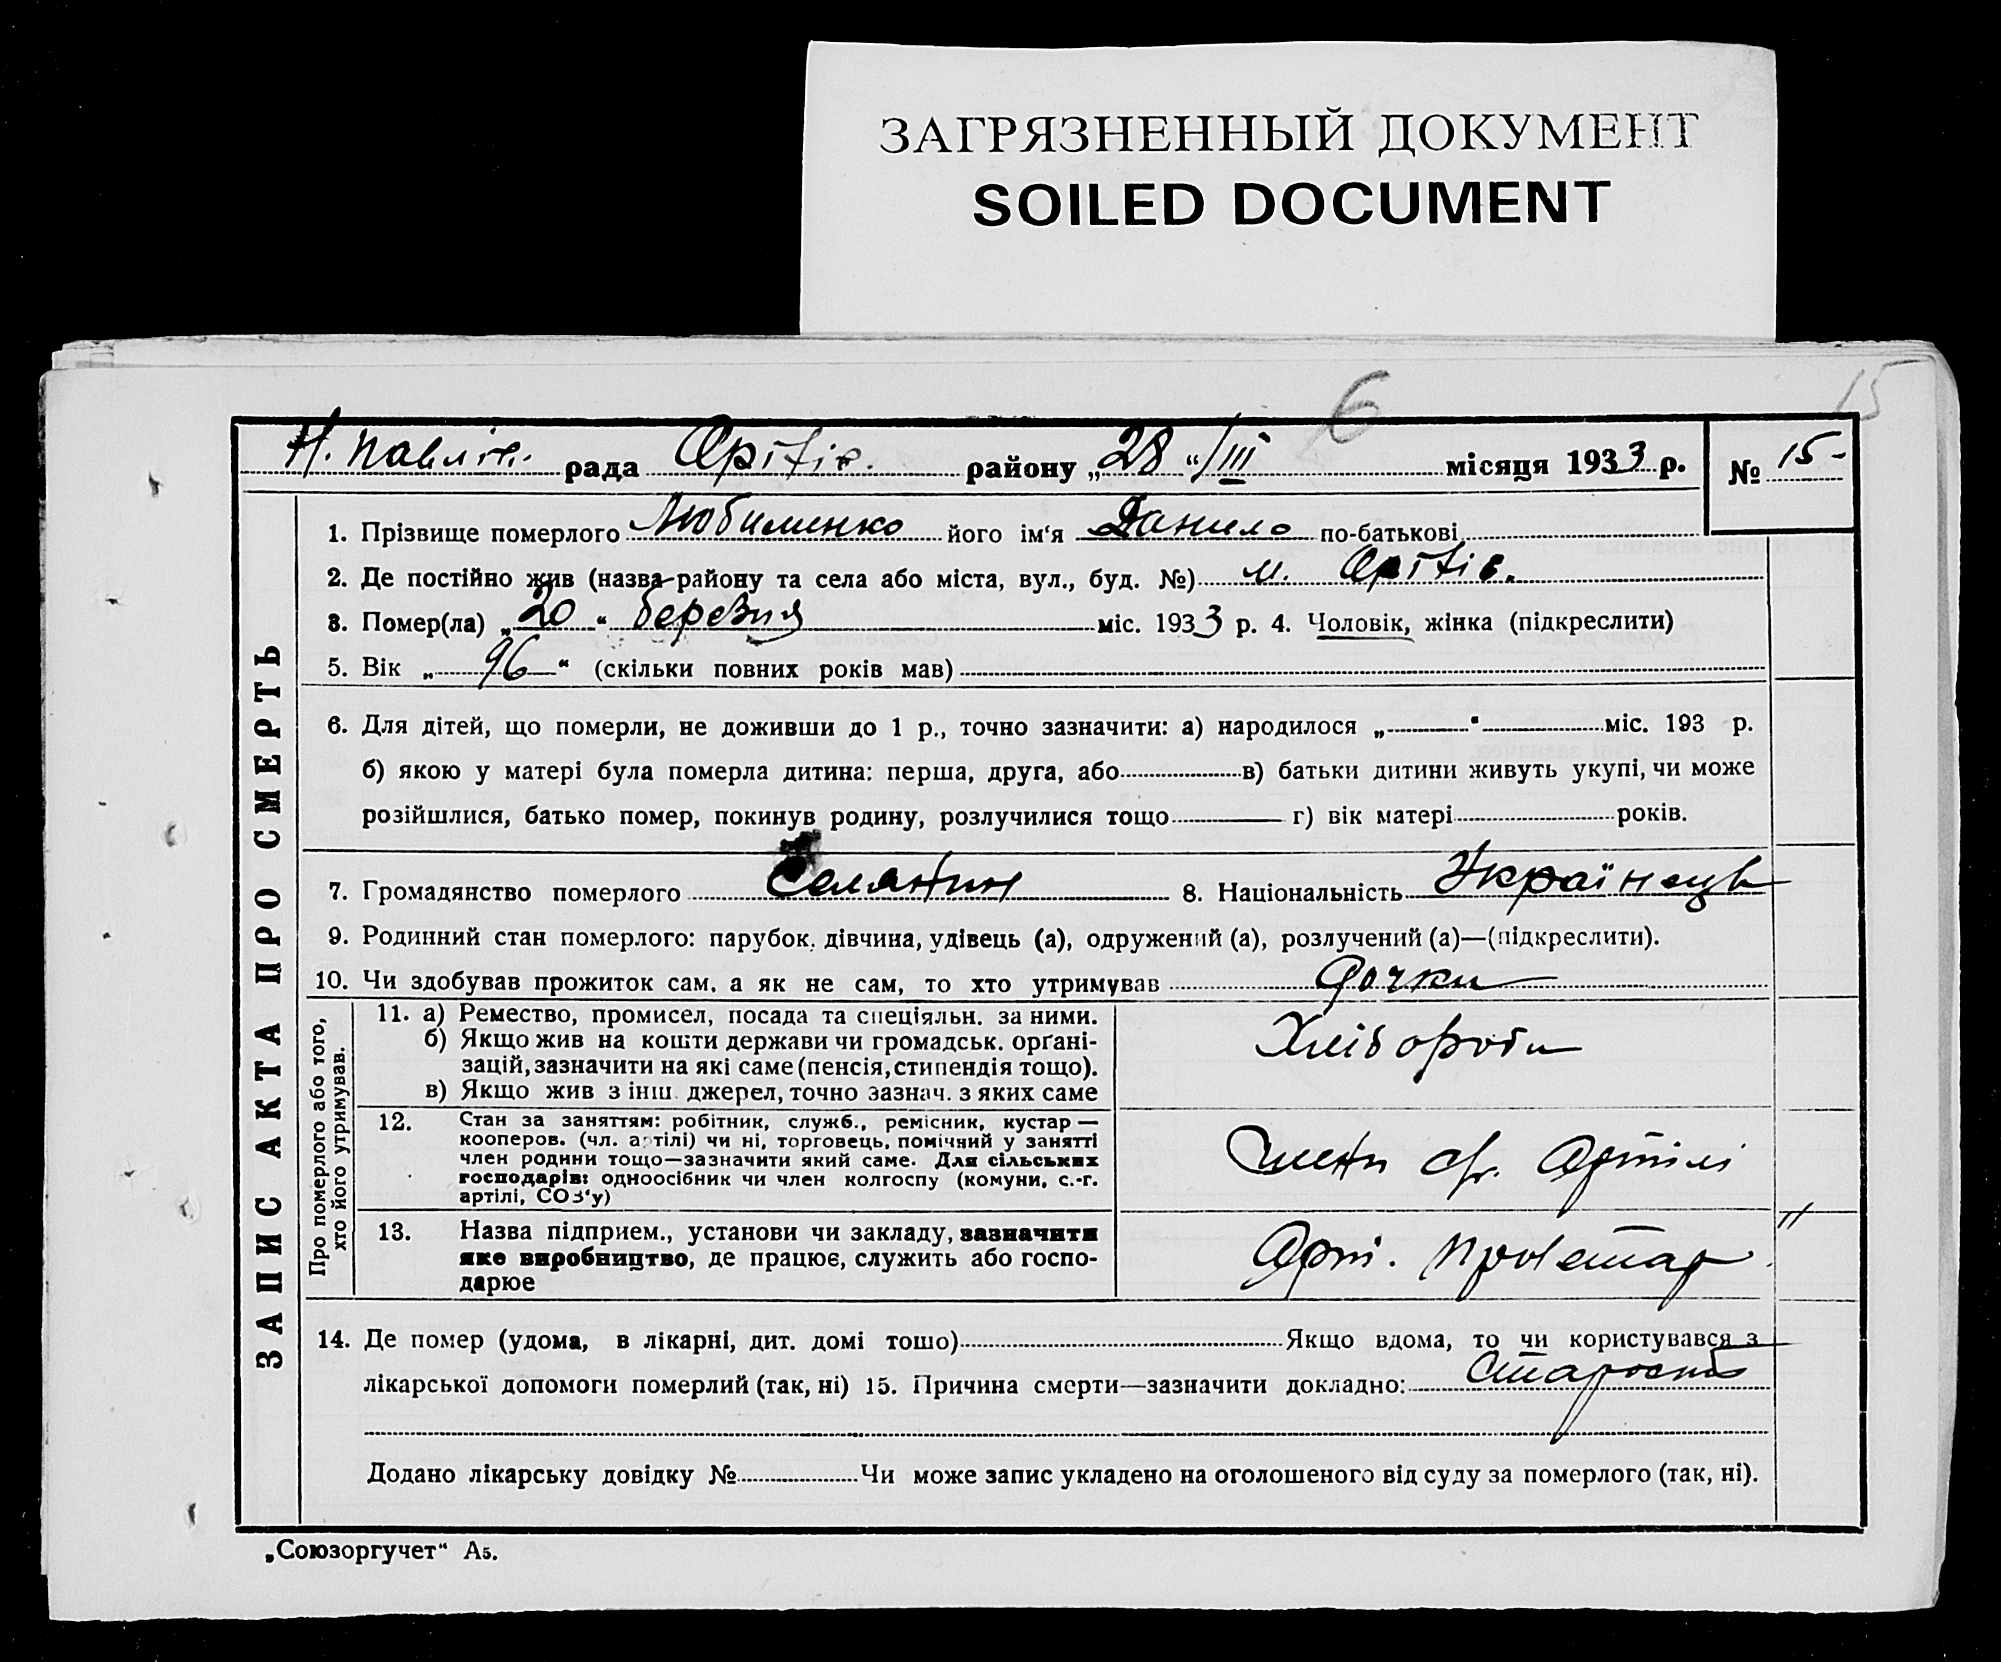 ЗАГРЯЗНЕННЫЙ ДОКУМЕНТ
SOILED DOCUMENT
6
15
Н. Павлів. рада Оріхів. району „28“/III місяця 1933 р. № 15-
ЗАПИС АКТА ПРО СМЕРТЬ
1. Прізвище померлого Любименко його ім‘я Данило по-батькові
2. Де постійно жив (назва району та села або міста, вул., буд. №) м. Оріхів.
3. Помер(ла) „20“ березня міс. 1933 р. 4. Чоловік, жінка (підкреслити)
5. Вік „96“ (скільки повних років мав)
6. Для дітей, що померли, не доживши до 1 р., точно зазначити: а) народилося „ “ міс. 193 р.
б) якою у матері була померла дитина: перша, друга, або в) батьки дитини живуть укупі, чи може
розійшлися, батько помер, покинув родину, розлучилися тощо г) вік матері років.
7. Громадянство померлого Селянин 8. Національність Українець
9. Родинний стан померлого: парубок, дівчина, удівець (а), одружений (а), розлучений (а)—(підкреслити).
10. Чи здобував прожиток сам, а як не сам, то хто утримував дочки
Про померлого або того,
хто його утримував.
11. а) Ремество, промисел, посада та спеціяльн. за ними.
б) Якщо жив на кошти держави чи громадськ. орґані-
зацій, зазначити на які саме (пенсія, стипендія тощо).
в) Якщо жив з інш. джерел, точно зазнач. з яких саме
Хлібороби
12. Стан за заняттям: робітник, служб., ремісник, кустар—
кооперов. (чл. артілі) чи ні, торговець, помічний у занятті
член родини тощо—зазначити який саме. Для сільських
господарів: одноосібник чи член колгоспу (комуни, с.-г.
артілі, СОЗ‘у)
члени Артілі
13. Назва підприєм., установи чи закладу, зазначити
яке виробництво, де працює, служить або госпо-
дарює
Арт. Пролетар
"
14. Де помер (удома, в лікарні, дит. домі тошо) Якщо вдома, то чи користувався з
лікарської допомоги померлий (так, ні) 15. Причина смерти—зазначити докладно: Старость
Додано лікарську довідку № Чи може запис укладено на оголошеного від суду за померлого (так, ні).
„Союзоргучет“ А5.